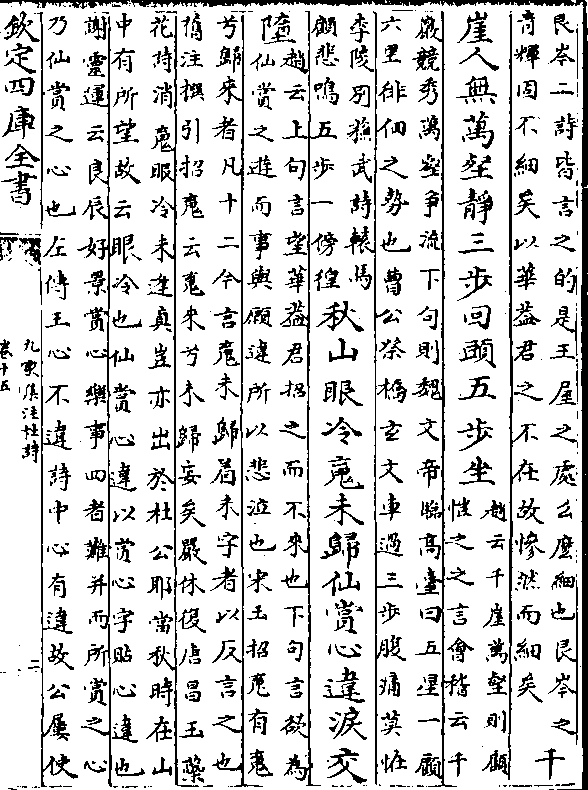 艮岑二詩皆言之的是王屋之處么麽細也艮岑之
青輝固不細矣以華蓋君之不在故慘然而細矣
千
崖人無萬壑靜三步回頭五步坐
趙云千崖萬壑則顧
愷之之言會稽云千
巖競秀萬壑爭流下句則魏文帝臨高臺曰五里一顧
六里徘徊之勢也曹公祭橋玄文車過三步腹痛莫怪
李陵別蘓武詩轅馬
顧悲鳴五步一傍徨
秋山眼冷䰟未歸仙賞心違淚交
墮
趙云上句言望華蓋君招之而不來也下句言欲為
仙賞之遊而事與願違所以悲泣也宋玉招䰟有䰟
兮歸來者凡十二今言䰟未歸着未字者以反言之也
舊注撰引招䰟云䰟來兮未歸妄矣嚴休復唐昌玉蘂
花時消䰟眼冷未逢真豈亦出於杜公耶當秋時在山
中有所望故云眼冷也仙賞心違以賞心字貼心違也
謝靈運云良辰好景賞心樂事四者難并而所賞之心
乃仙賞之心也左傳王心不違詩中心有違故公屢使
欽定四庫全書
九家集注杜詩
卷十五
二